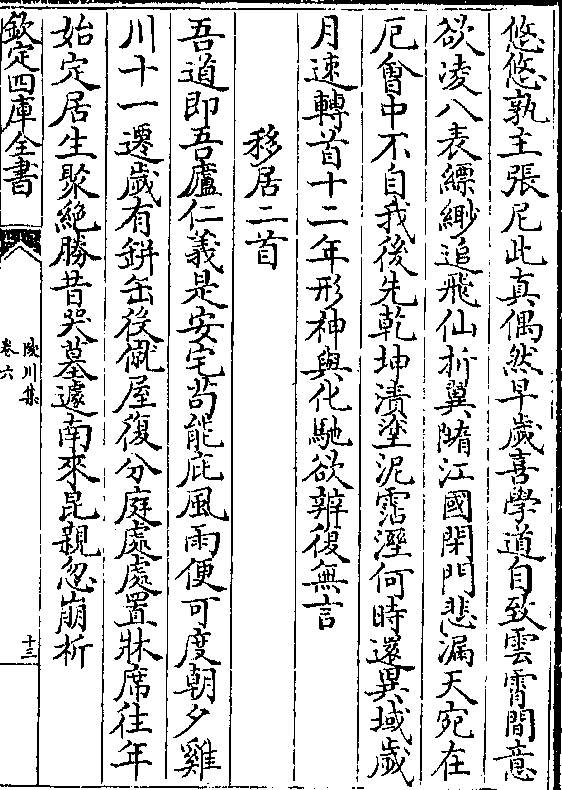 悠悠孰主張尼此真偶然早歲喜學道自致雲霄間意
欲凌八表縹緲追飛仙折翼墮江國閉門悲漏天宛在
厄會中不自我後先乾坤漬塗泥霑溼何時還異域歲
月速轉首十二年形神與化馳欲辨復無言
移居二首
吾道即吾廬仁義是安宅苟能庇風雨便可度朝夕雞
川十一遷歲有缾缶後僦屋復分庭處處置牀席往年
始定居生聚絶勝昔哭墓遽南來昆親忽崩析
欽定四庫全書
陵川集
卷六
十三